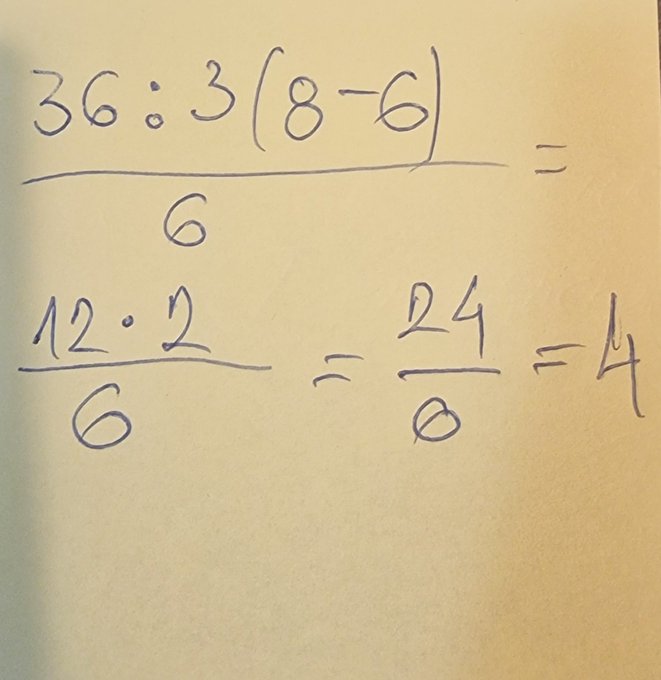 36:3(8-6)
6 =
12·2
6 = 24
6 = 4